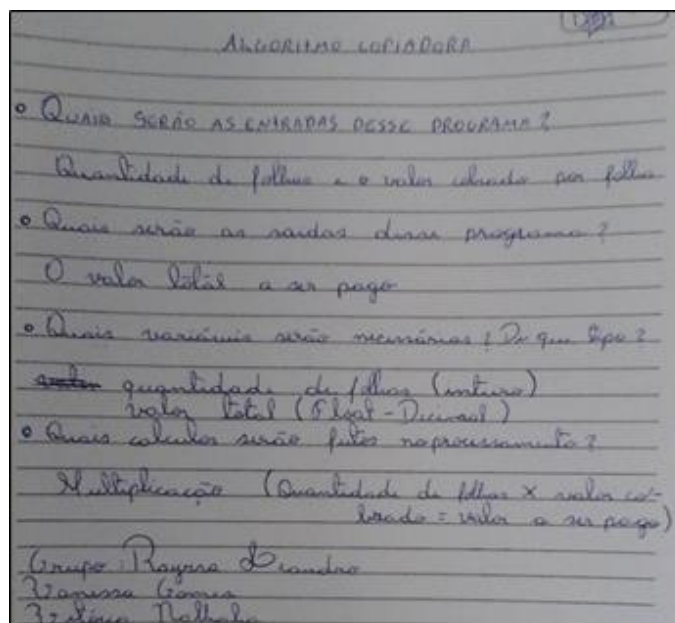 ALGORITMO COPIADORA
• QUAIS SERÃO AS ENTRADAS DESSE PROGRAMA?
Quantidade de folhas e o valor cobrado por folha
• Quais serão as saídas desse programa?
O valor total a ser pago
• Quais variáveis serão necessárias? De que tipo?
quantidade de folhas (inteiro)
valor total (Float - Decimal)
• Quais calculos serão feitos no processamento?
Multiplicação (Quantidade de folhas X valor co-
brado = valor a ser pago)
Grupo: Rayssa Leandro
Vanessa Gomes